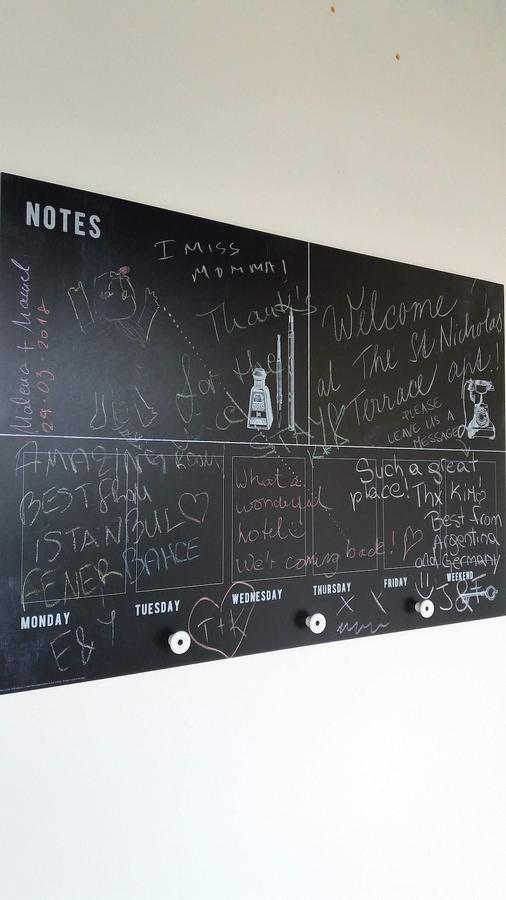 NOTES
I MISS
MOMMA!
29.03 2018
Thank's
for the
STAY
Welcome
at The St Nicholas
Terrace aps.!
PLEASE
LEAVE US A
MESSAGE
AMAZING Room
BEST from
ISTANBUL
FENER BAHCE
What a
wonderful
hotel
We'r coming back!
Such a great
place! Thx Kiki
Best from
Argentina
and Germany
J&F
MONDAY
TUESDAY
WEDNESDAY
THURSDAY
FRIDAY
WEEKEND
E & Y
T+K
X X